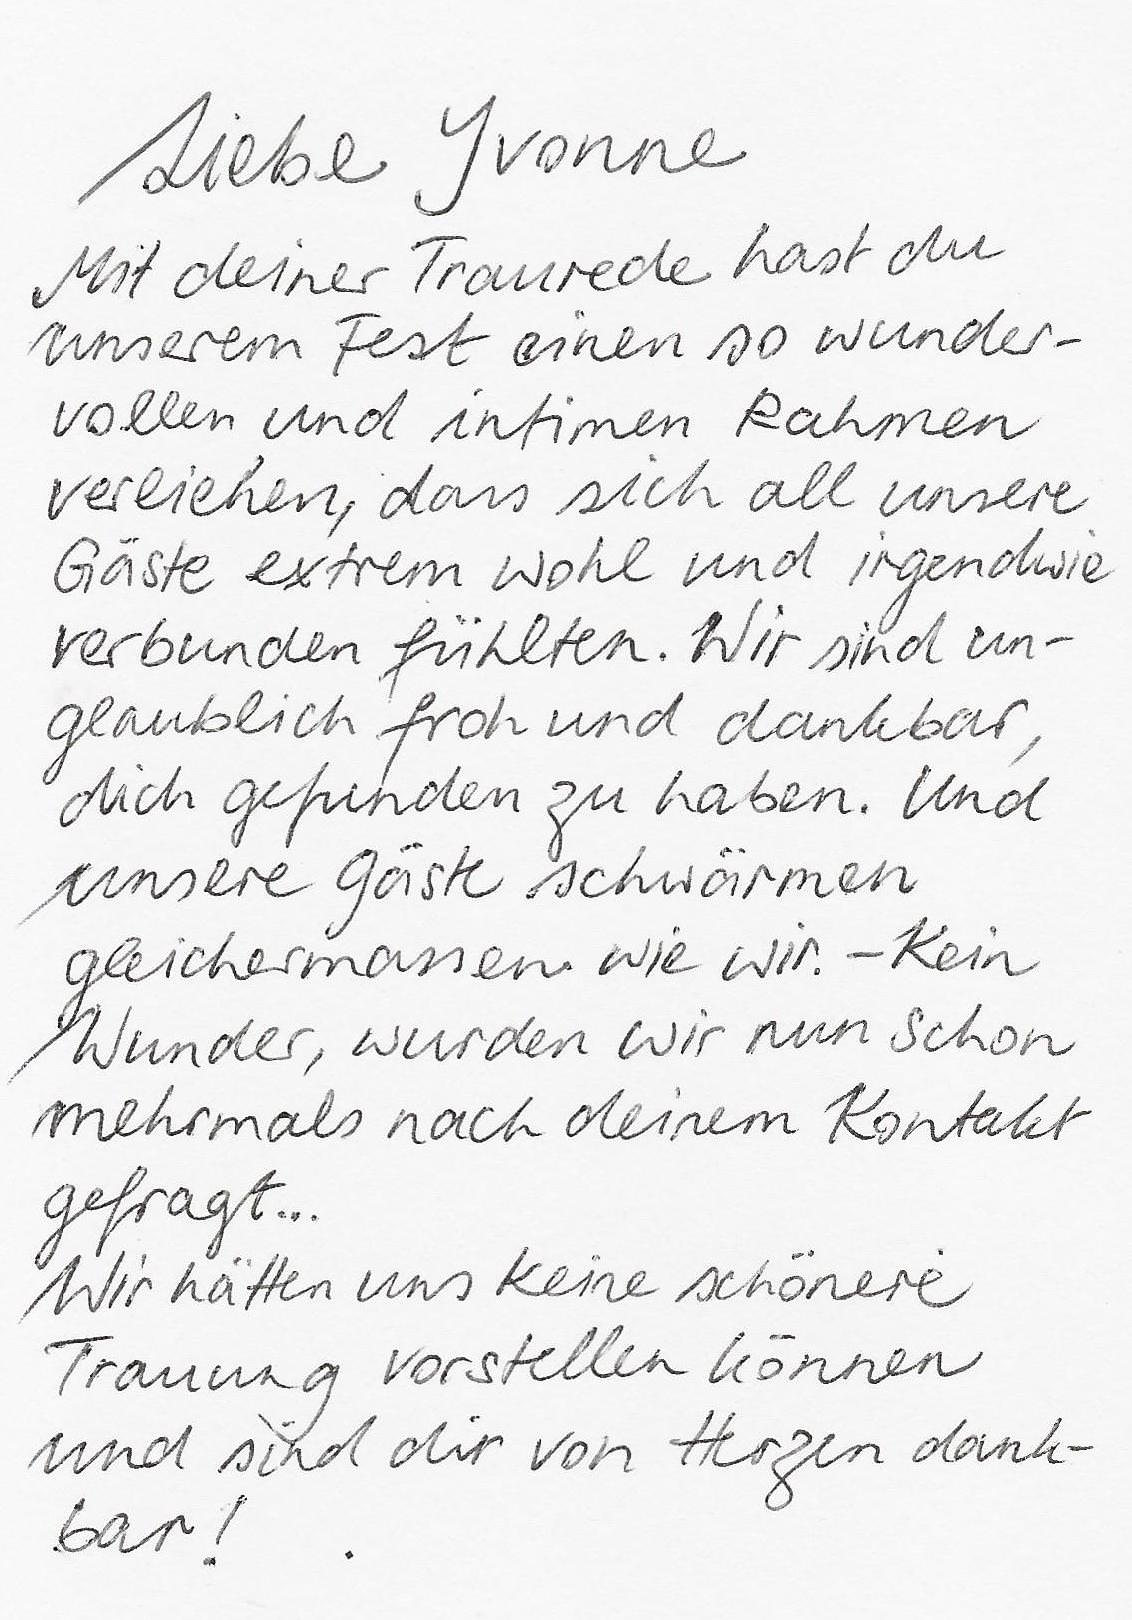 Liebe Yvonne
Mit deiner Traurede hast du
unserem Fest einen so wunder-
vollen und intimen Rahmen
verliehen, dass sich all unsere
Gäste extrem wohl und irgendwie
verbunden fühlten. Wir sind un-
glaublich froh und dankbar,
dich gefunden zu haben. Und
unsere Gäste schwärmen
gleichermassen wie wir. – Kein
Wunder, wurden wir nun schon
mehrmals nach deinem Kontakt
gefragt...
Wir hätten uns keine schönere
Trauung vorstellen können
und sind dir von Herzen dank-
bar!